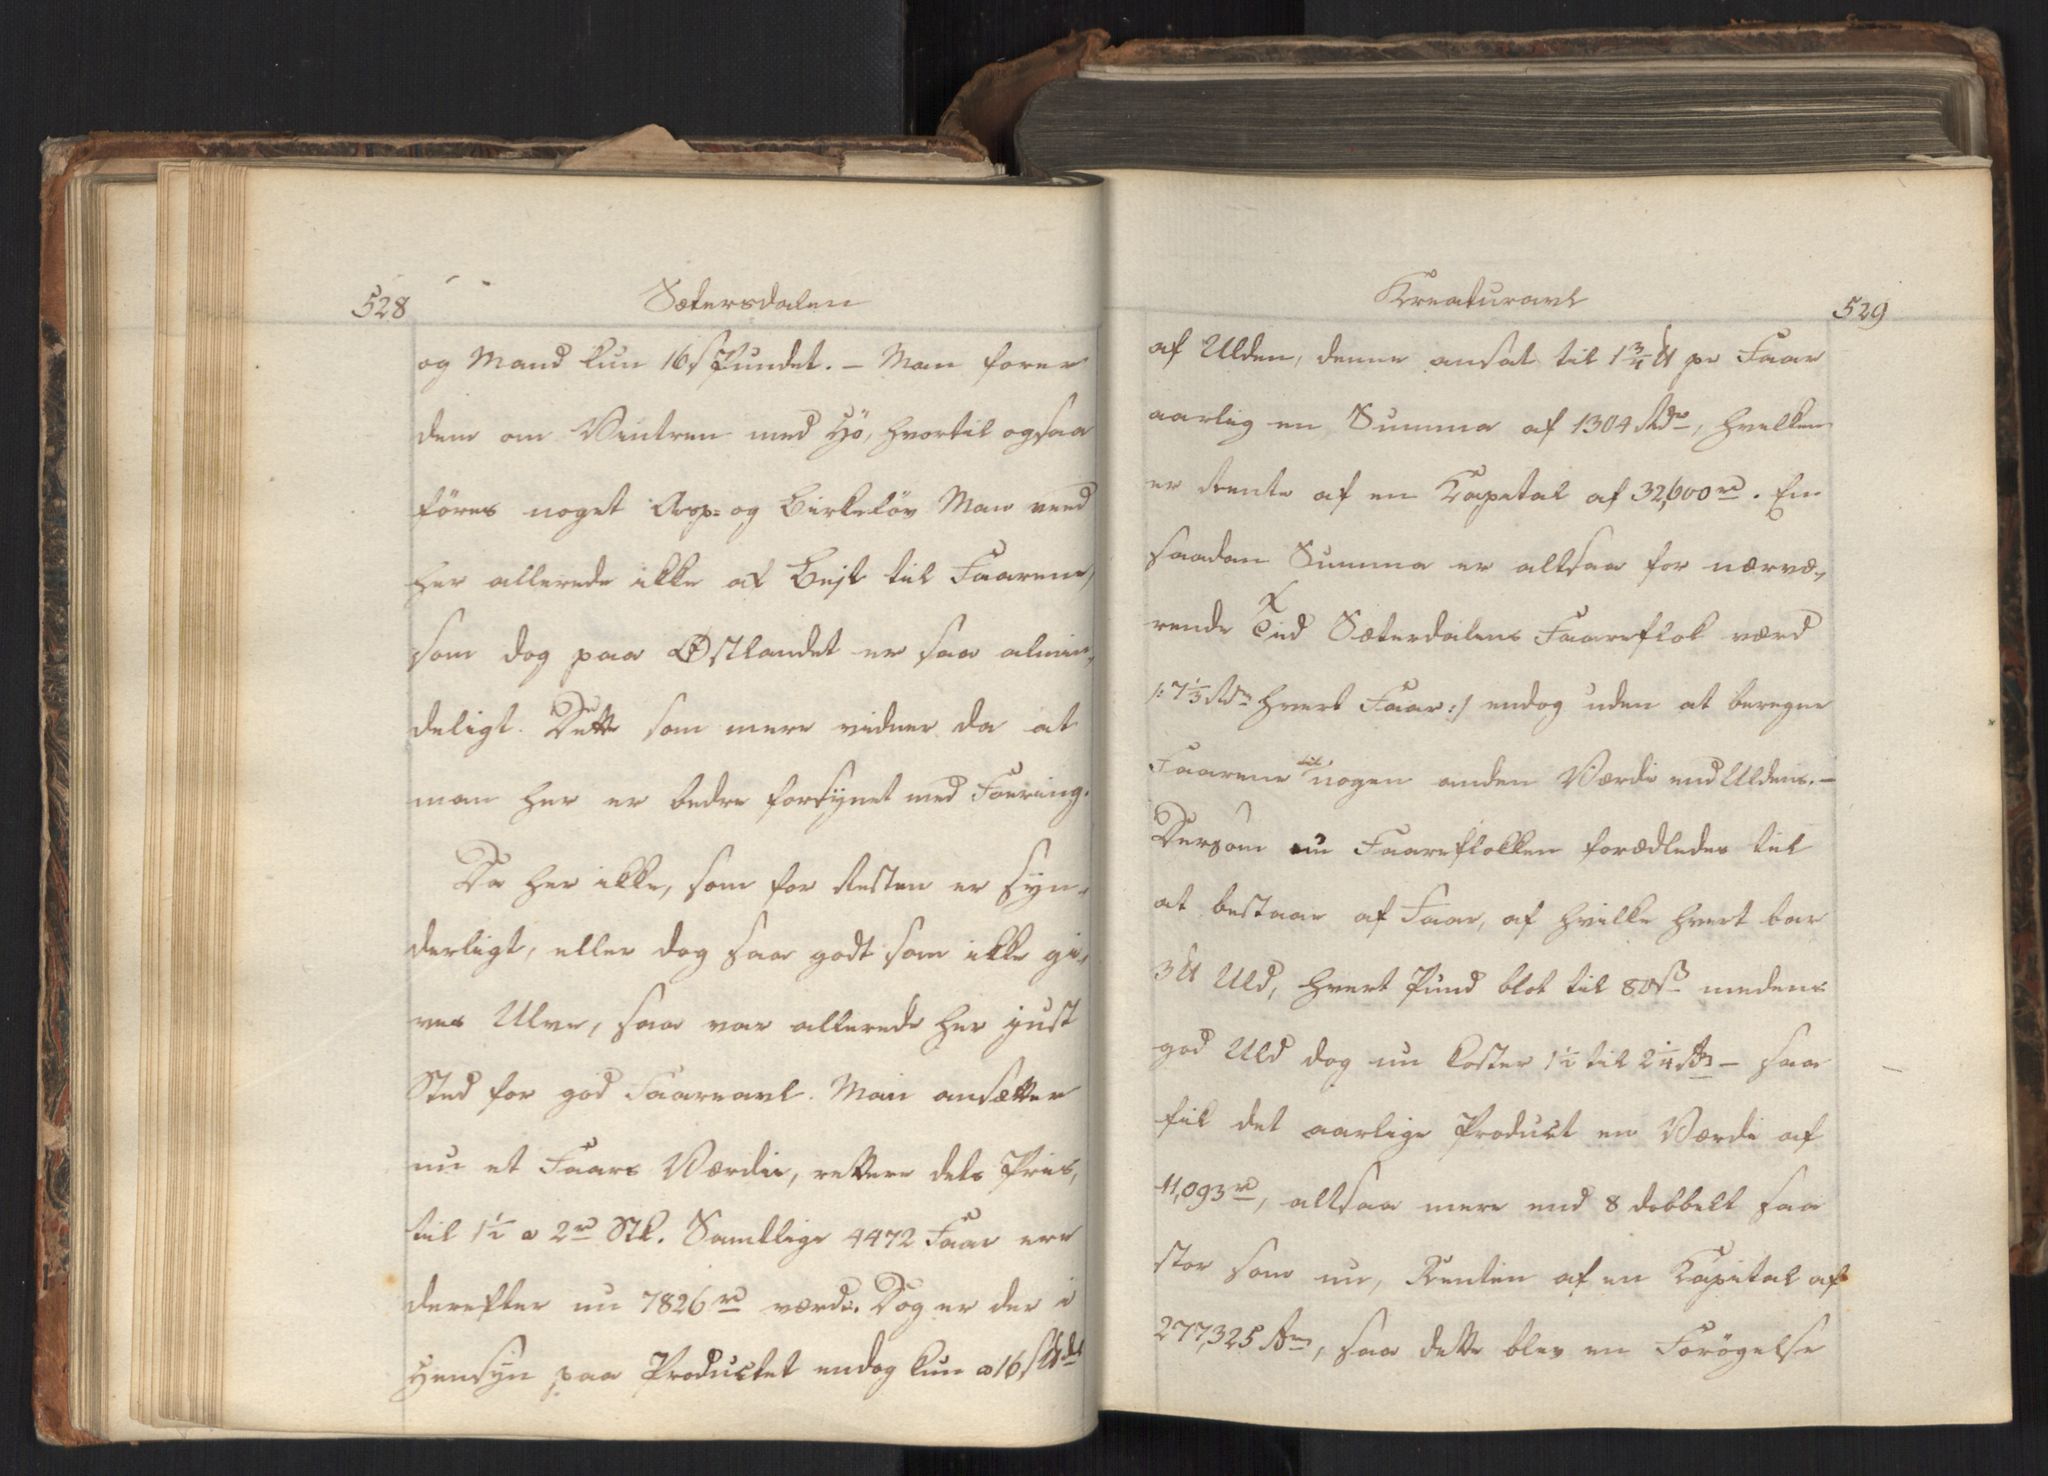 528
Sætersdalen
og Mand kun 16 s Pundet. – Man forer
dem om Vintren med Hö, hvortil ogsaa
föres noget Asp- og Birkelöv Man veed
her allerede ikke af Bejt til Faarene,
som dog paa Østlandet er saa almin-
deligt. Dette som mere vidner da at
man her er bedre forsynet med Foering.
Da her ikke, som for Resten er syn-
derligt, eller dog saa godt som ikke gi-
ves Ulve, saa var allerede her just
Sted for god Faareavl. Man ansætter
nu et Faars Værdie, rettere dets Priis,
til 1½ a 2 rd Stk. Samtlige 4472 Faar ere
derefter nu 7826 rd værd. Dog er der i
Hensyn paa Productet endog kun a 16 s ℔det
Kreaturavl
529
af Ulden, denne ansat til 1¾ ℔ pr Faar
aarlig en Summa af 1304 Rdr, hvilken
er Rente af en Kapital af 32,600 rd. En
saadan Summa er altsaa for nærvæ-
rende Tid Sæterdalens Faareflok værd
/: 7⅓ Rdr hvert Faar :/ endog uden at beregne
Faarene til nogen anden Værdi end Uldens. –
Dersom nu Faareflokken forædledes til
at bestaae af Faar, af hvilke hvert bar
3 ℔ Uld, hvert Pund blot til 80 s medens
god Uld dog nu koster 1½ til 2¼ Rdr – saa
fik det aarlige Product en Værdi af
11,093 rd, altsaa mere end 8 dobbelt saa
stor som nu, Renten af en Kapital af
277,325 Rdr, saa dette blev en Forögelse